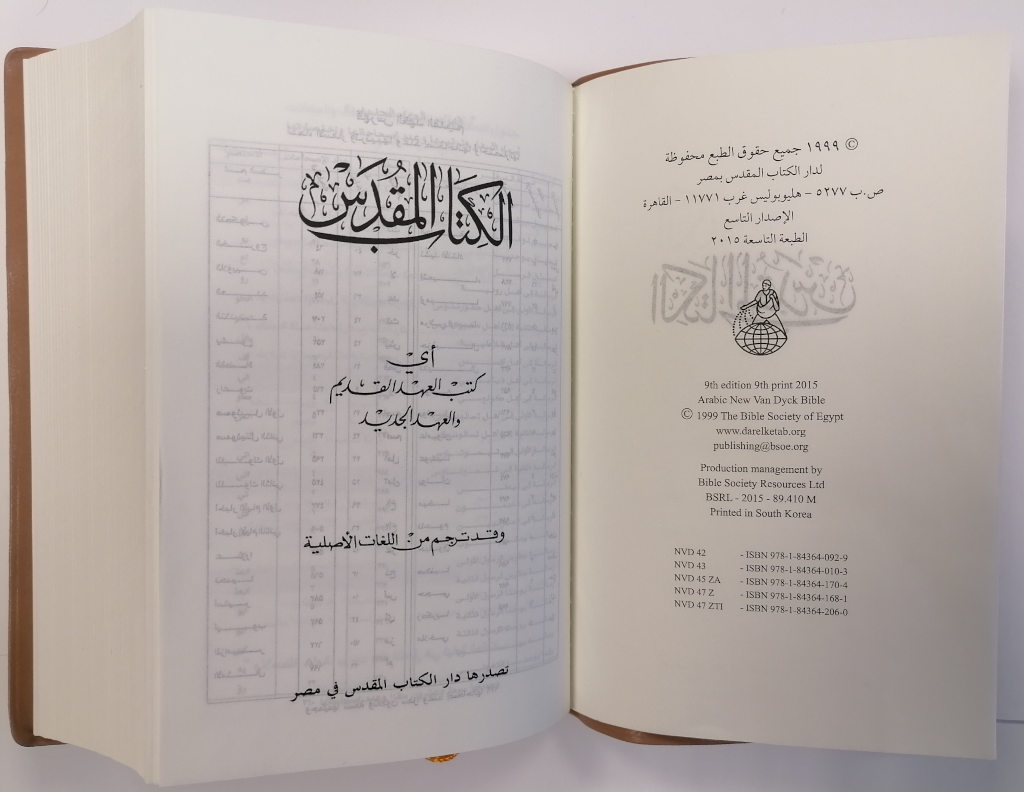 الكِتَابُ المُقَدَّسُ
أي
كتب العهد القديم
والعهد الجديد
وقد ترجم من اللغات الأصلية
تصدرها دار الكتاب المقدس في مصر
© ١٩٩٩ جميع حقوق الطبع محفوظة
لدار الكتاب المقدس بمصر
ص.ب ٥٢٧٧ - هليوبوليس غرب ١١٧٧١ - القاهرة
الإصدار التاسع
الطبعة التاسعة ٢٠١٥
9th edition 9th print 2015
Arabic New Van Dyck Bible
© 1999 The Bible Society of Egypt
www.darelketab.org
publishing@bsoe.org
Production management by
Bible Society Resources Ltd
BSRL - 2015 - 89.410 M
Printed in South Korea
NVD 42 - ISBN 978-1-84364-092-9
NVD 43 - ISBN 978-1-84364-010-3
NVD 45 ZA - ISBN 978-1-84364-170-4
NVD 47 Z - ISBN 978-1-84364-168-1
NVD 47 ZTI - ISBN 978-1-84364-206-0